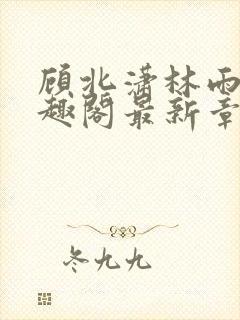 顾北潇林雨
趣阁最新章
冬九九